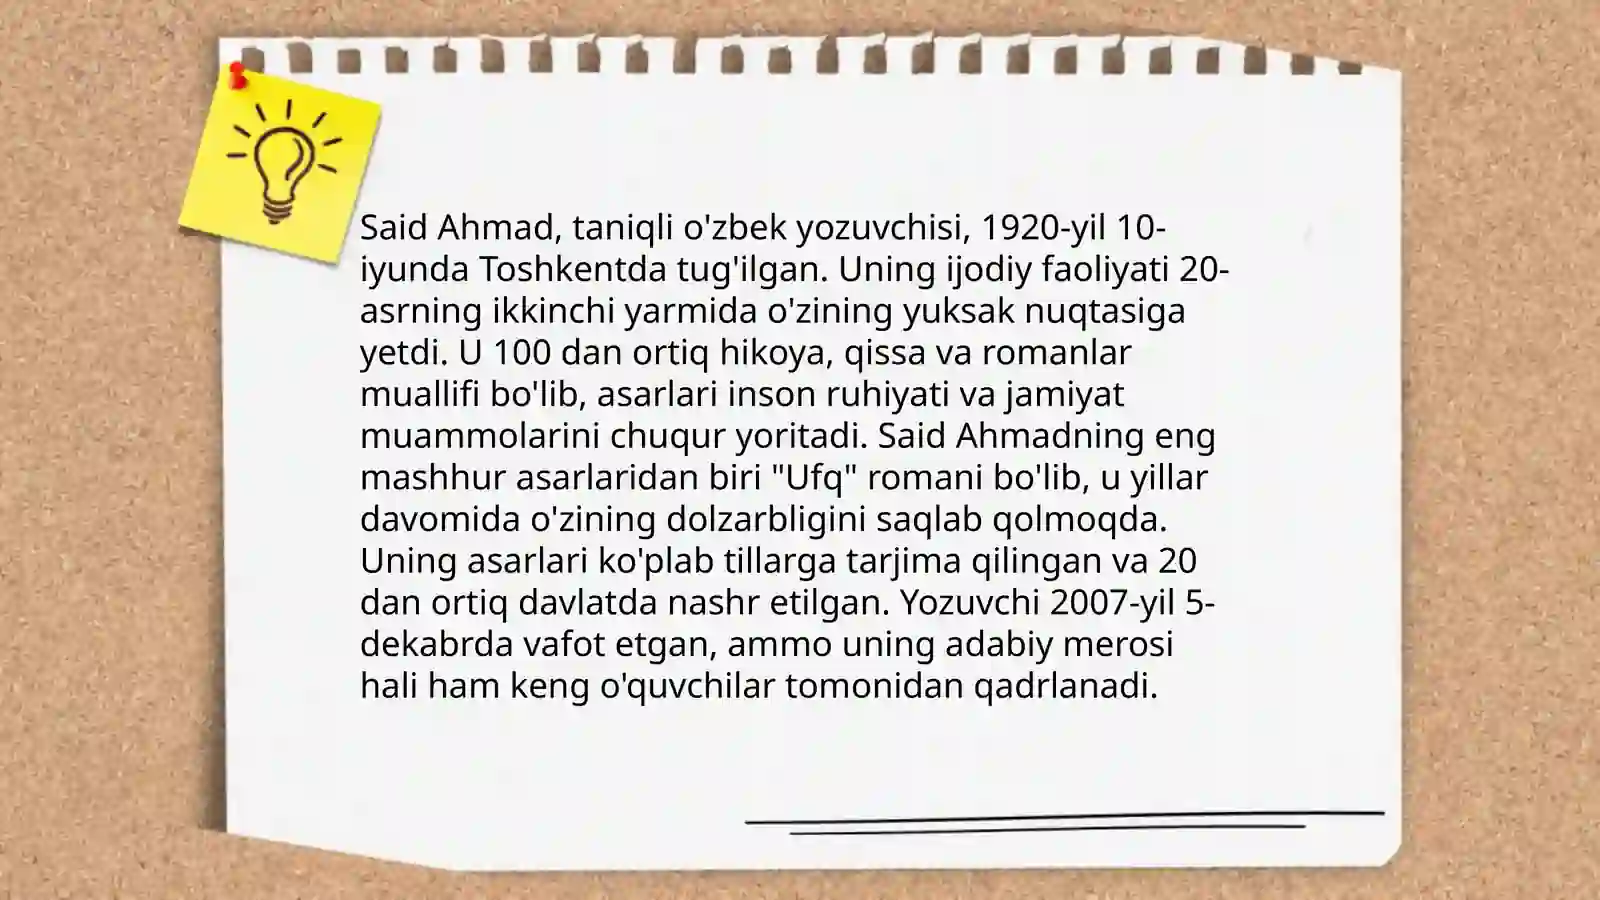 Said Ahmad, taniqli o'zbek yozuvchisi, 1920-yil 10-
iyunda Toshkentda tug'ilgan. Uning ijodiy faoliyati 20-
asrning ikkinchi yarmida o'zining yuksak nuqtasiga
yetdi. U 100 dan ortiq hikoya, qissa va romanlar
muallifi bo'lib, asarlari inson ruhiyati va jamiyat
muammolarini chuqur yoritadi. Said Ahmadning eng
mashhur asarlaridan biri "Ufq" romani bo'lib, u yillar
davomida o'zining dolzarbligini saqlab qolmoqda.
Uning asarlari ko'plab tillarga tarjima qilingan va 20
dan ortiq davlatda nashr etilgan. Yozuvchi 2007-yil 5-
dekabrda vafot etgan, ammo uning adabiy merosi
hali ham keng o'quvchilar tomonidan qadrlanadi.